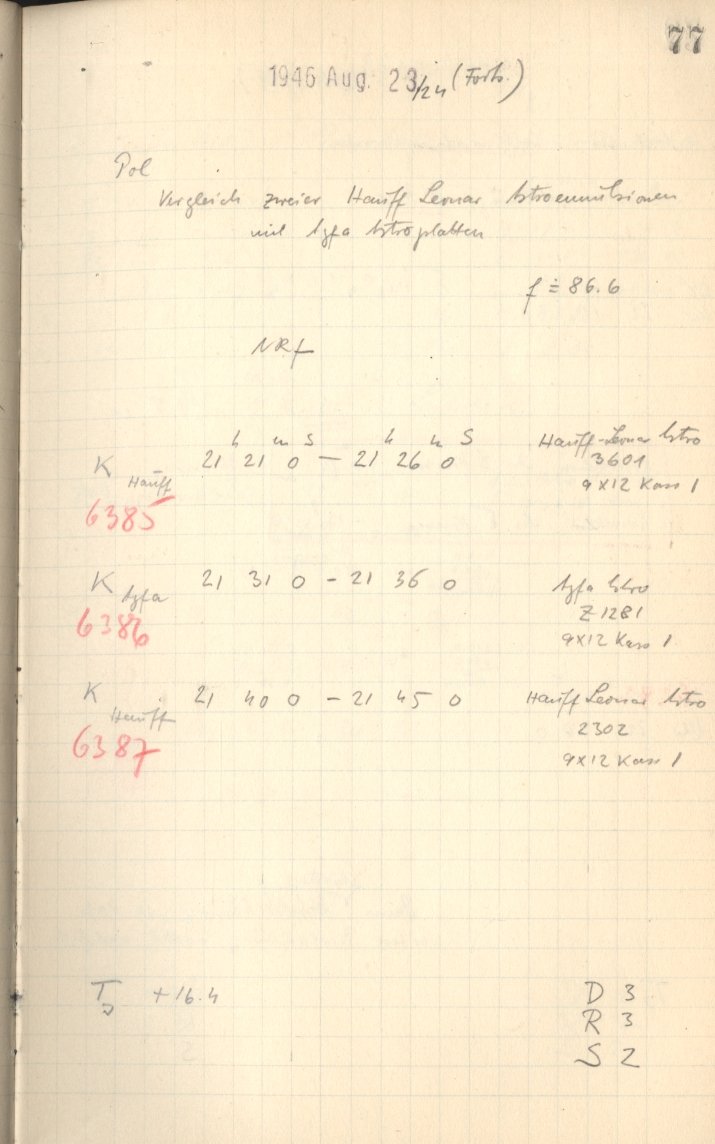 77
1946 Aug. 23/24 (Forts.)
Pol
Vergleich zweier Hauff Leonar Astroemulsionen
mit Agfa Astroplatten
f ≐ 86.6
NRf
h m s h m s
K Hauff 21 21 0 — 21 26 0 Hauff-Leonar Astro
3601
6385 9x12 Kass 1
K Agfa 21 31 0 - 21 36 0 Agfa Astro
6386 Z 1281
9x12 Kass 1
K Hauff 21 40 0 - 21 45 0 Hauff Leonar Astro
6387 2302
9x12 Kass 1
T +16.4 D 3
R 3
S 2